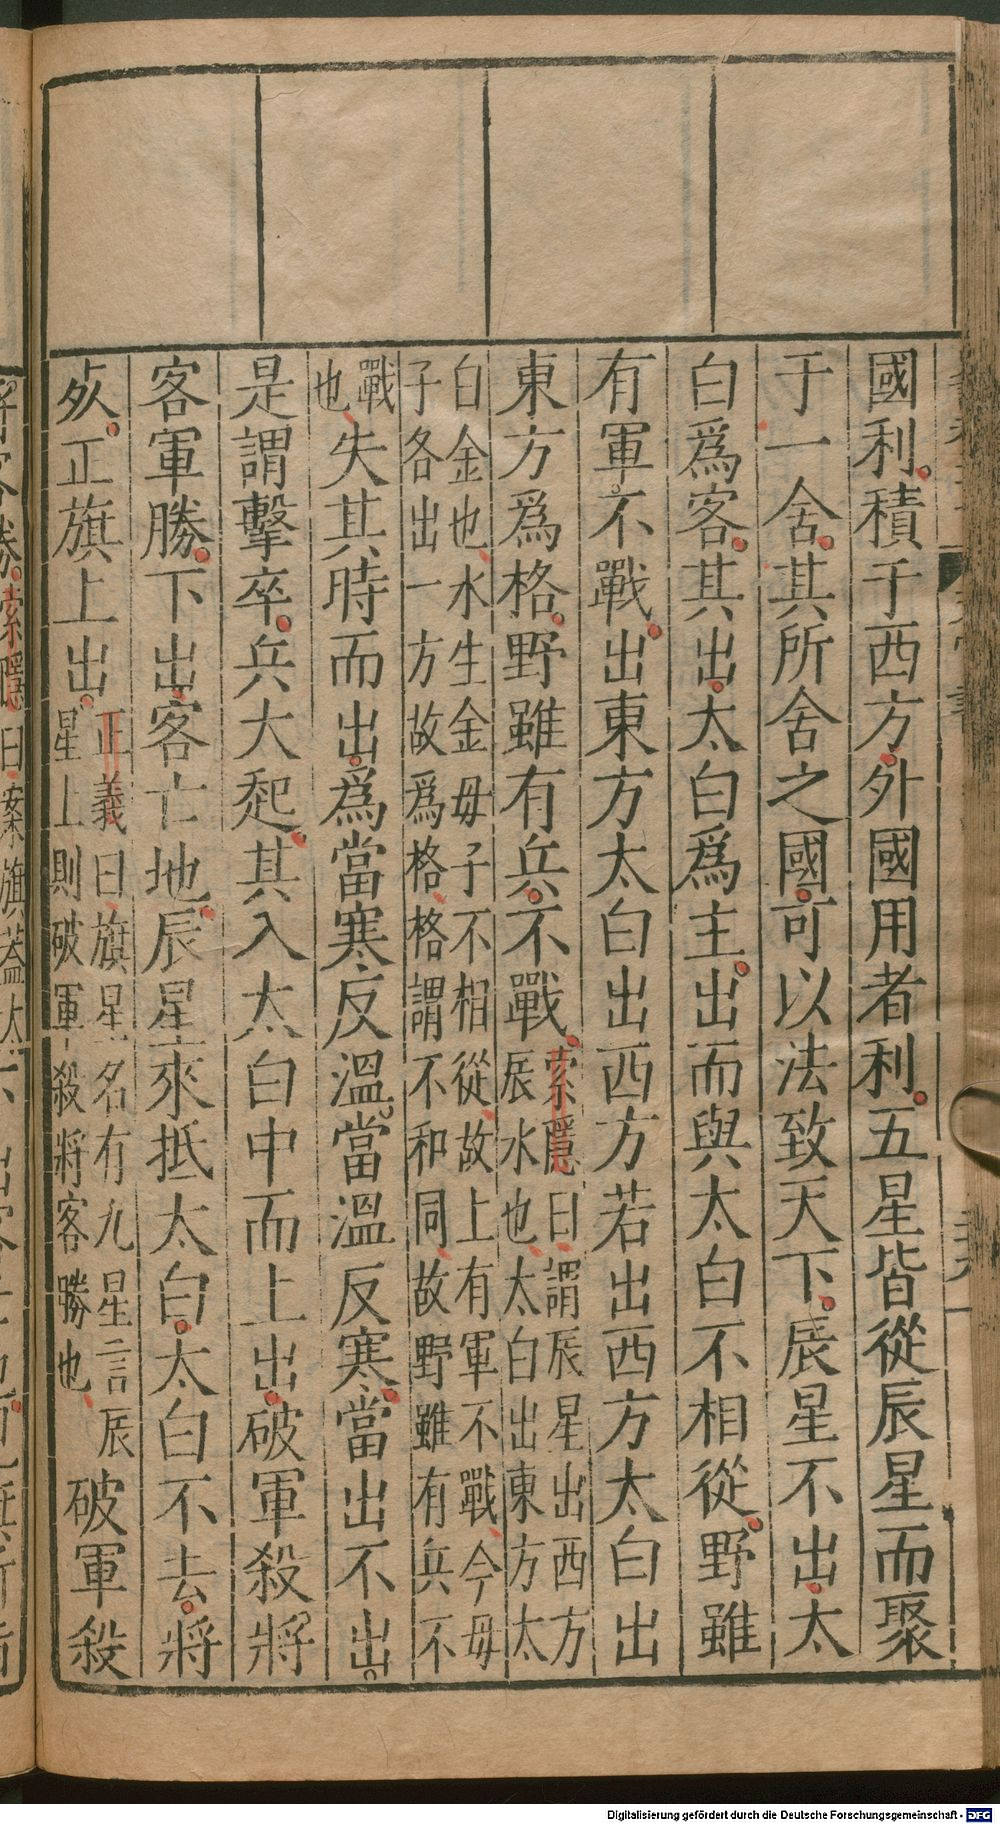 國利積于西方外國用者利五星皆從辰星而聚
于一舍其所舍之國可以法致天下辰星不出太
白爲客其出太白爲主出而與太白不相從野雖
有軍不戰出東方太白出西方若出西方太白出
東方爲格野雖有兵不戰
索隱曰謂辰星出西方
辰水也太白出東方太
白金也水生金母子不相從故上有軍不戰今母
子各出一方故爲格格謂不和同故野雖有兵不
戰
也
失其時而出爲當寒反溫當溫反寒當出不出
是謂擊卒兵大起其入太白中而上出破軍殺將
客軍勝下出客亡地辰星來抵太白太白不去將
死正旗上出
正義曰旗星名有九星言辰
星上則破軍殺將客勝也
破軍殺
Digitalisierung gefördert durch die Deutsche Forschungsgemeinschaft - DFG